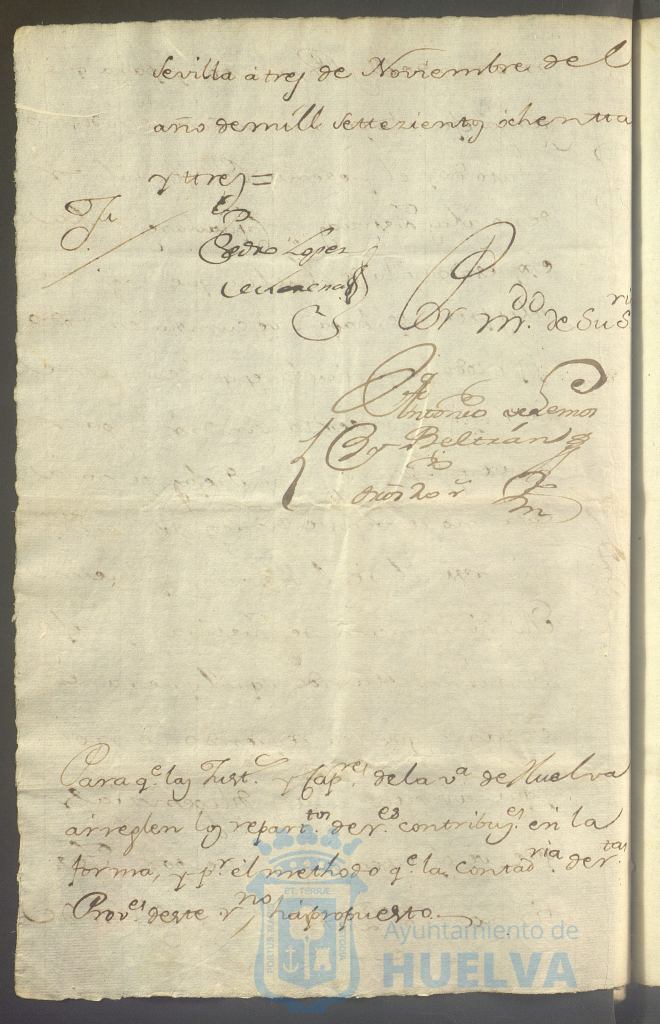 Sevilla á tres de Noviembre del
año de mill settezientos ochentta
y ttres =
Pedro Lopez
Por m.do de Su S.ria
Antonio de Lemos
y Beltrán
Para q.e las Just.s y Cap.res de la v.a de Huelva
arreglen los repart.tos de r.es contribuz.es en la
forma, y p.r el methodo q.e la Contad.ria de r.tas
Prov.es deste r.no há propuesto.
PORTUS MARIS ET TERRÆ CUSTODIA
Ayuntamiento de
HUELVA